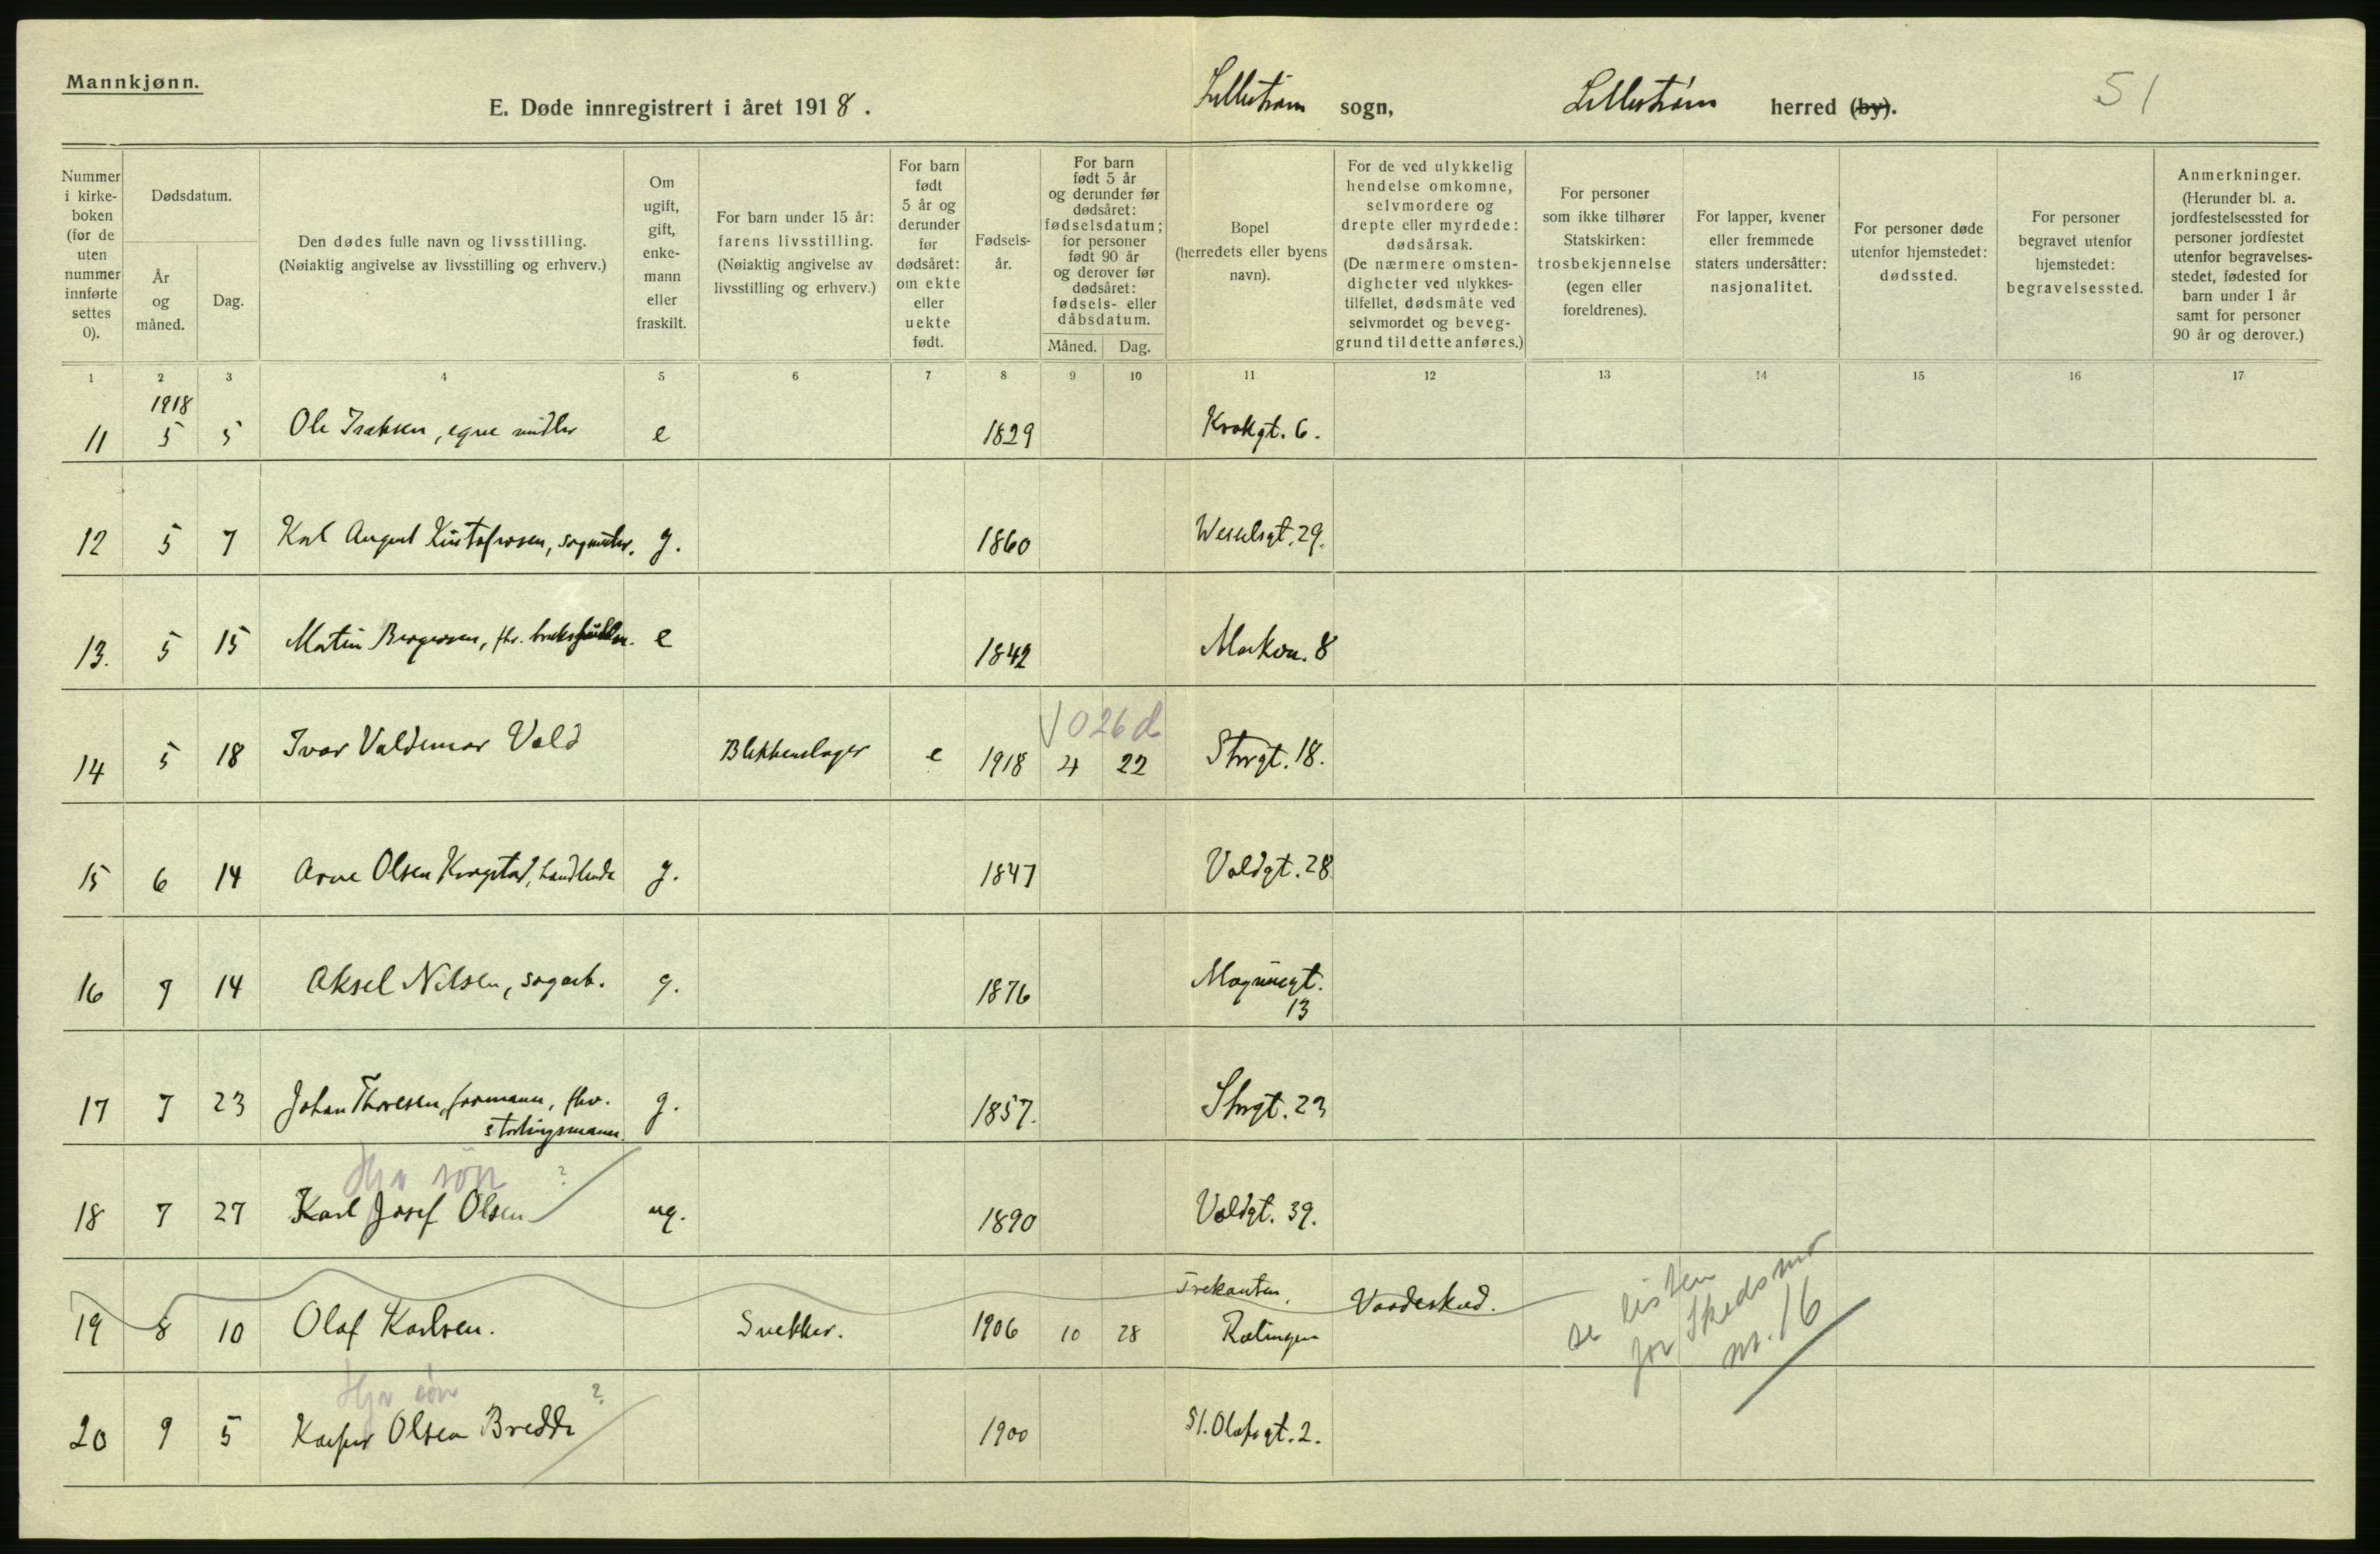 Mannkjønn.
E. Døde innregistrert i året 1918.
Lillestrøm sogn,
Lillestrøm herred (by).
51
Nummer i kirkeboken (for de uten nummer innførte settes 0).
Dødsdatum.
År og måned.
Dag.
Den dødes fulle navn og livsstilling.
(Nøiaktig angivelse av livsstilling og erhverv.)
Om ugift, gift, enkemann eller fraskilt.
For barn under 15 år: farens livsstilling.
(Nøiaktig angivelse av livsstilling og erhverv.)
For barn født 5 år og derunder før dødsåret: om ekte eller uekte født.
Fødselsår.
For barn født 5 år og derunder før dødsåret: fødselsdatum; for personer født 90 år og derover før dødsåret: fødsels- eller dåbsdatum.
Måned.
Dag.
Bopel (herredets eller byens navn).
For de ved ulykkelig hendelse omkomne, selvmordere og drepte eller myrdede: dødsårsak.
(De nærmere omstendigheter ved ulykkestilfellet, dødsmåte ved selvmordet og beveggrund til dette anføres.)
For personer som ikke tilhører Statskirken: trosbekjennelse (egen eller foreldrenes).
For lapper, kvener eller fremmede staters undersåtter: nasjonalitet.
For personer døde utenfor hjemstedet: dødssted.
For personer begravet utenfor hjemstedet: begravelsessted.
Anmerkninger.
(Herunder bl. a. jordfestelsessted for personer jordfestet utenfor begravelsesstedet, fødested for barn under 1 år samt for personer 90 år og derover.)
1 2 3 4 5 6 7 8 9 10 11 12 13 14 15 16 17
1918
11 5 5 Ole Isaksen, egne midler e 1829 Krokgt. 6.
12 5 7 Karl August Gustafssen, g. 1860 Wesselsgt. 29.
13. 5 15 Martin Bergersen, fhv. e 1842 Markvn. 8
026d
14 5 18 Ivar Valdemar Vold Blikkenslager e 1918 4 22 Storgt. 18.
15 6 14 Arne Olsen handlende g. 1847 Voldgt. 28
16 7 14 Aksel Nilsen, sagarb. g. 1876 Magnusgt.
13
17 7 23 Johan Thoresen, formann, fhv. g. 1857. Storgt. 23
stortingsmann.
Hjr søn ?
18 7 27 Karl Josef Olsen ug. 1890 Voldgt. 39.
Trekanten,
19 8 10 Olaf Karlsen. Snekker. 1906 10 28 Rælingen Vaadeskud.
se listen
for Skedsmo
nr. 16
Hjr søn ?
20 9 5 Kasper Olsen Bredde 1900 St. Olafsgt. 2.